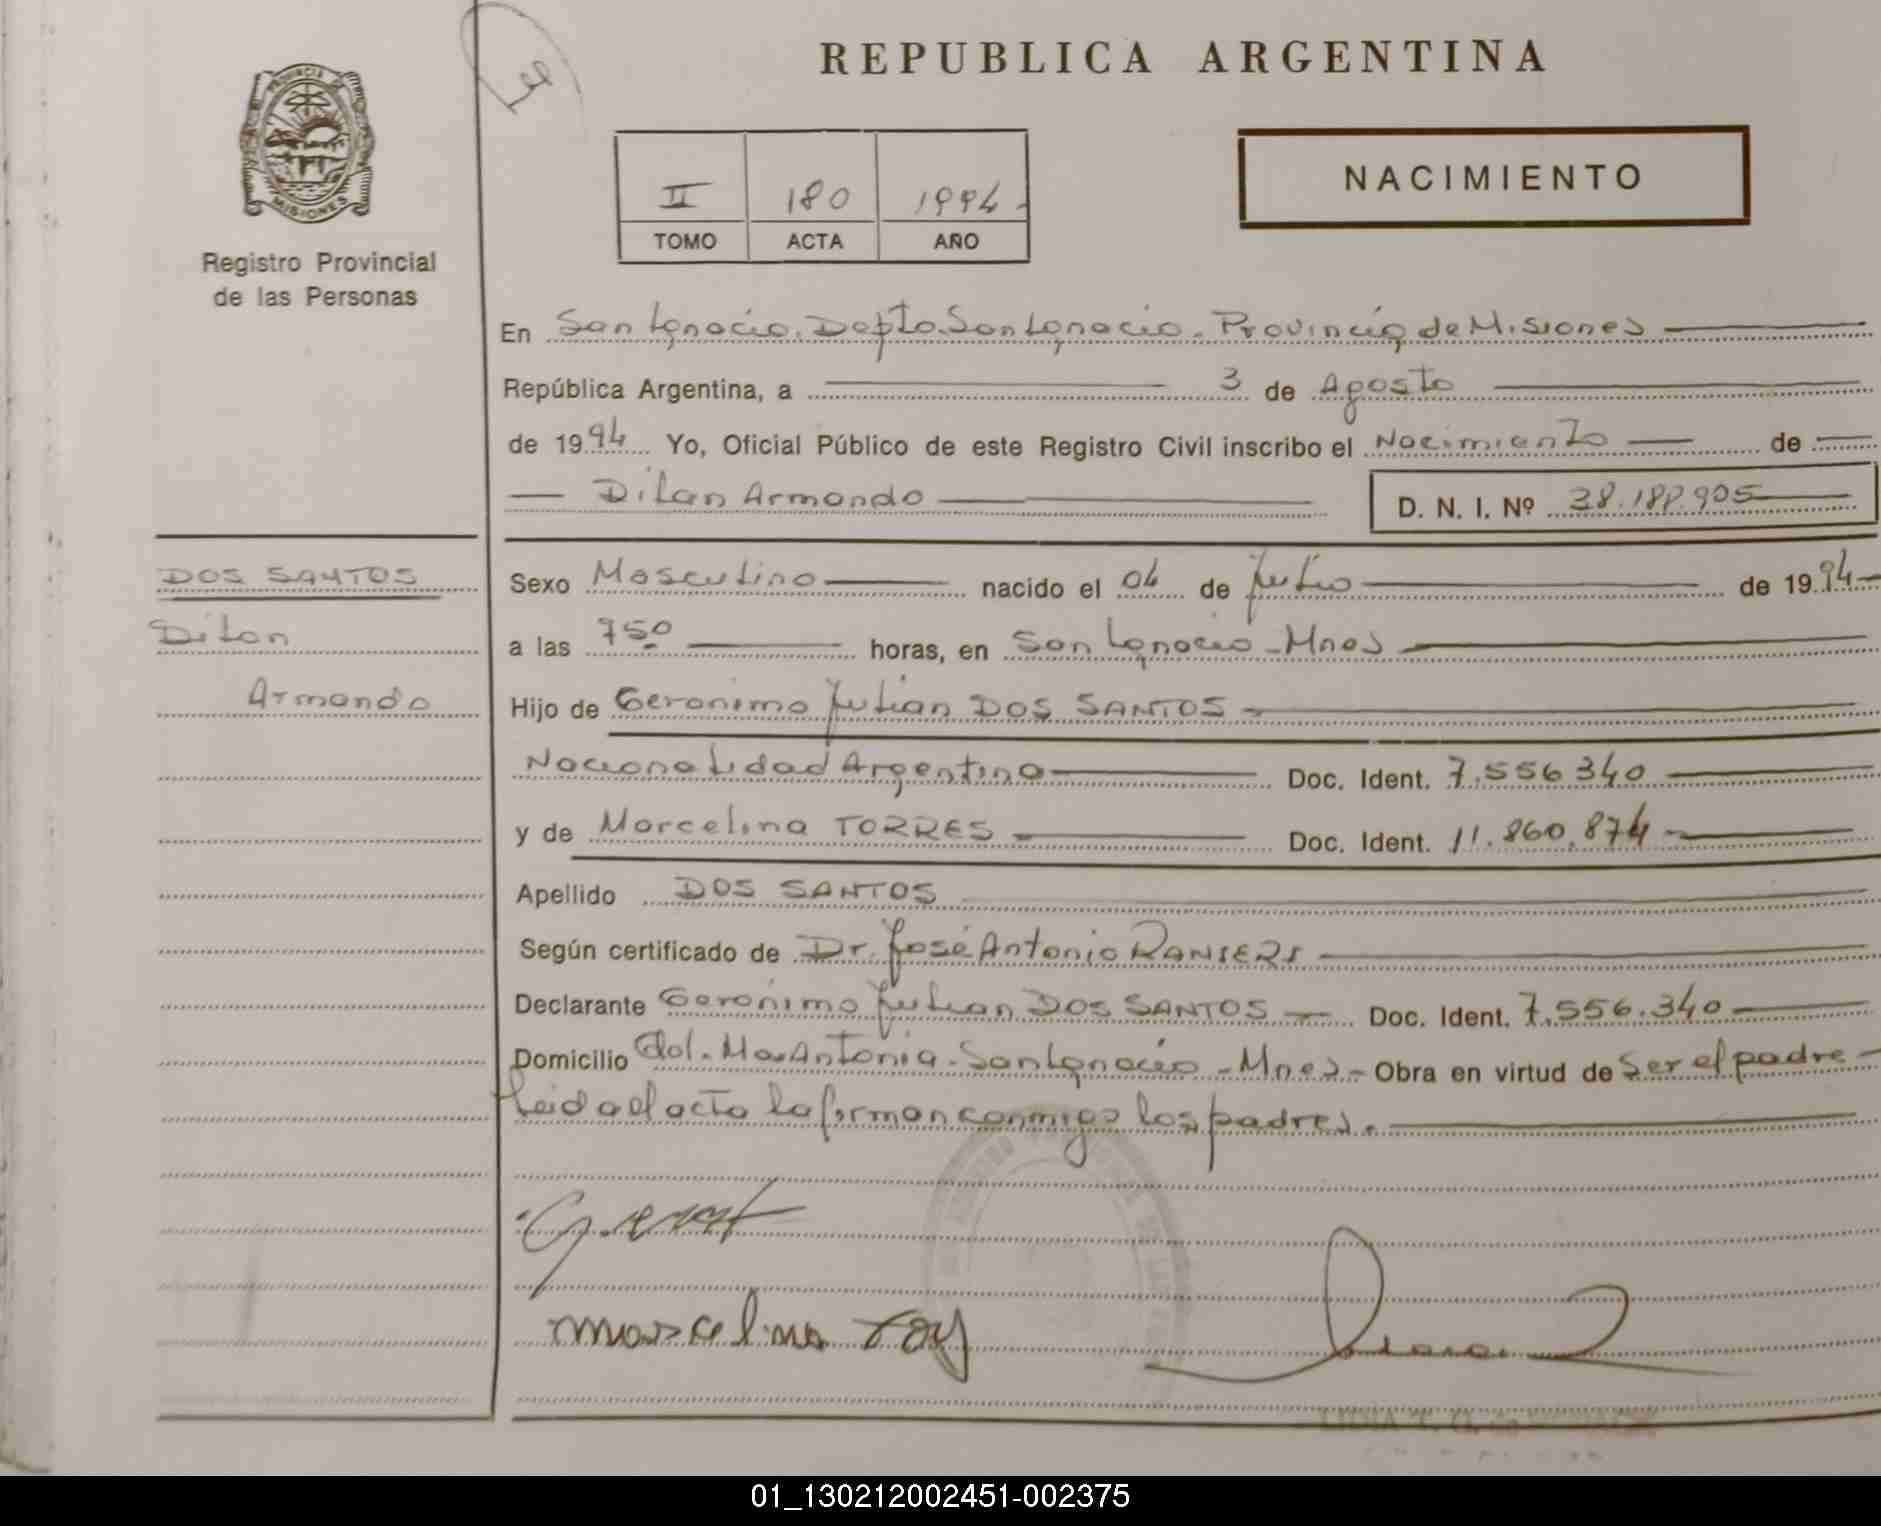 REPUBLICA ARGENTINA
PROVINCIA DE
MISIONES
Registro Provincial
de las Personas
II 180 1994
TOMO ACTA AÑO
NACIMIENTO
En San Ignacio. Depto San Ignacio. Provincia de Misiones
República Argentina, a 3 de Agosto
de 1994 Yo, Oficial Público de este Registro Civil inscribo el Nacimiento de
Dilan Armando D. N. I. Nº 38.188.905
DOS SANTOS
Dilan
Armando
Sexo Masculino nacido el 04 de Julio de 1994
a las 7 50 horas, en San Ignacio - Mnes
Hijo de Geronimo Julian DOS SANTOS
Nacionalidad Argentina Doc. Ident. 7.556 340
y de Marcelina TORRES Doc. Ident. 11.860.874
Apellido DOS SANTOS
Según certificado de Dr. José Antonio
Declarante Geronimo Julian DOS SANTOS Doc. Ident. 7.556.340
Domicilio Col. Ma Antonia - San Ignacio - Mnes - Obra en virtud de Ser el padre
Leida el acta la forman conmigo los padres.
marcelina
01_130212002451-002375